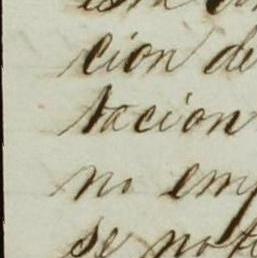 cion de
tacion
no emp
se not